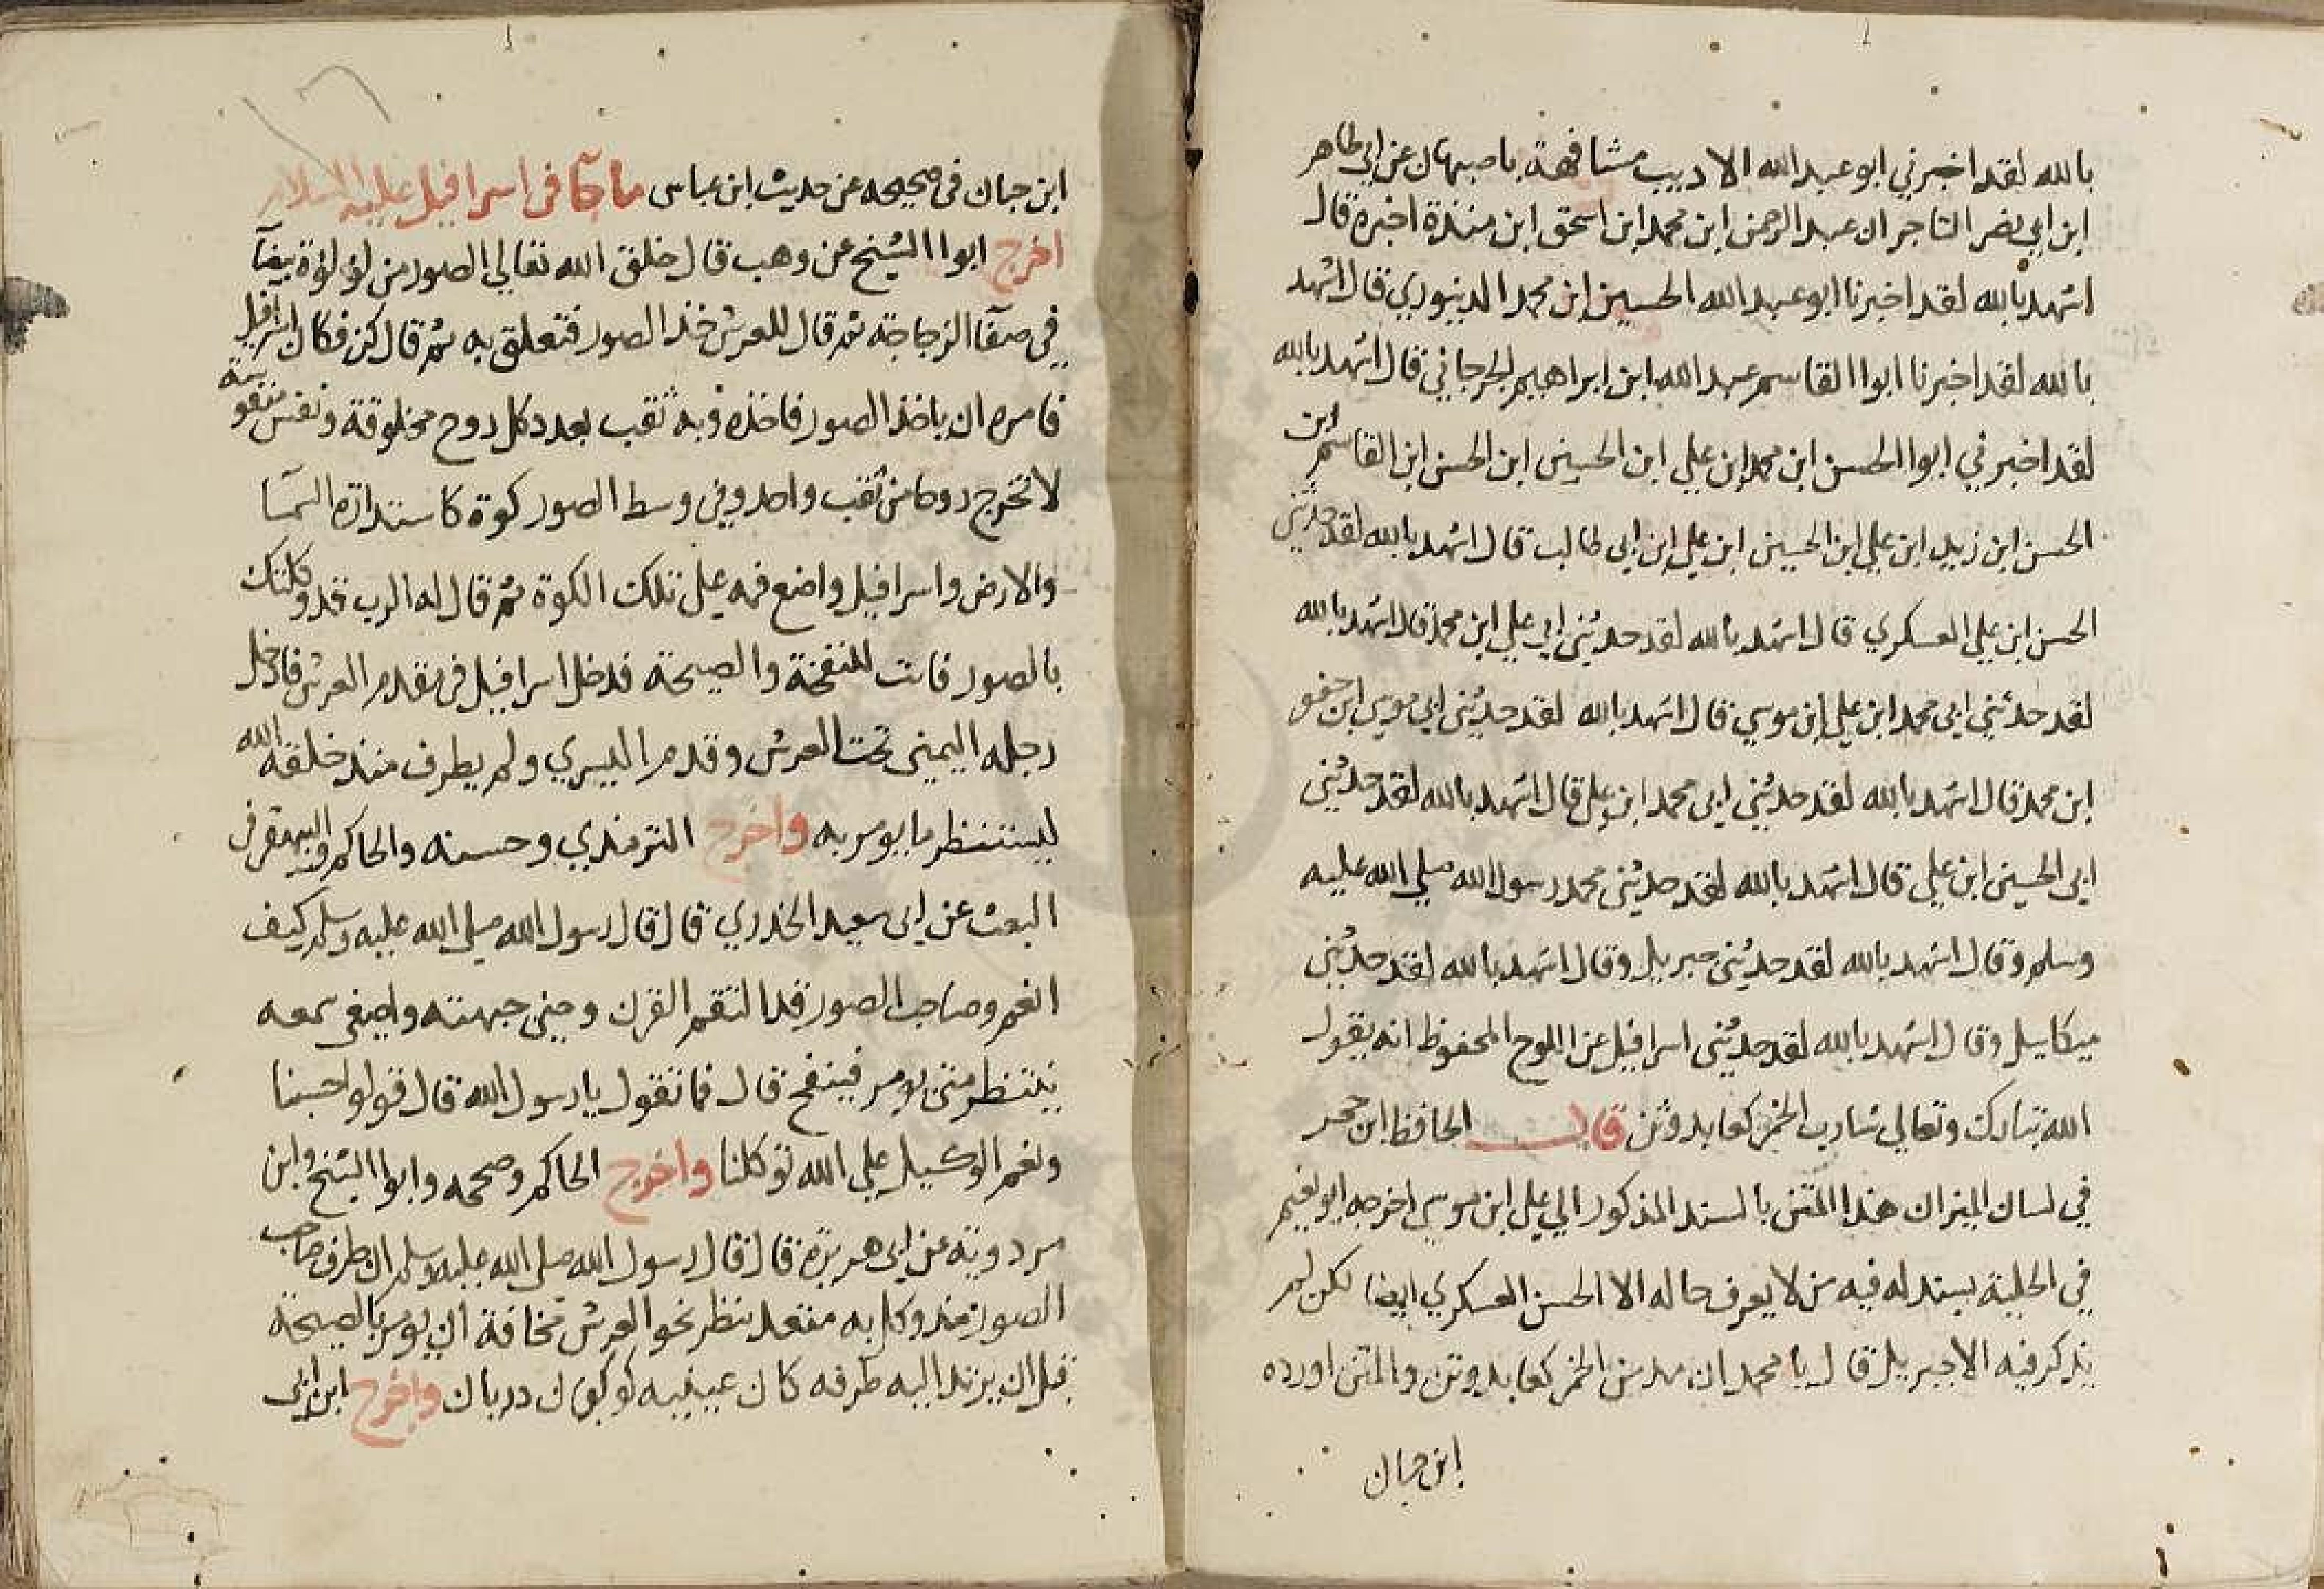 بالله لقد اخبرني ابو عبد الله الاديب مشافهة باصبهان عن ابي طاهر
ابن ابي نصر التاجر ان عبد الرحمن ابن محمد ابن اسحق ابن منذة اخبره قال
اشهد بالله لقد اخبرنا ابو عبد الله الحسين ابن محمد الدينوري قال اشهد
بالله لقد اخبرنا ابوا القاسم عبد الله ابن ابراهيم الجرجاني قال اشهد بالله
لقد اخبرني ابوا الحسن ابن محمد ابن علي ابن الحسين ابن الحسن ابن القاسم ابن
الحسن ابن زيد ابن علي ابن الحسين ابن علي ابن ابي طالب قال اشهد بالله لقد حدثني
الحسن ابن علي العسكري قال اشهد بالله لقد حدثني ابي علي ابن محمد قال اشهد بالله
لقد حدثني ابي محمد ابن علي ابن موسي قال اشهد بالله لقد حدثني ابي موسي ابن جعفر
ابن محمد قال اشهد بالله لقد حدثني ابي محمد ابن علي قال اشهد بالله لقد حدثني
ابي الحسين ابن علي قال اشهد بالله لقد حدثني محمد رسول الله صلي الله عليه
وسلم وقال اشهد بالله لقد حدثني جبريل وقال اشهد بالله لقد حدثني
ميكاييل وقال اشهد بالله لقد حدثني اسرافيل عن اللوح المحفوظ انه يقول
الله تبارك وتعالي شارب الخمر كعابد وثن قال الحافظ ابن حجر
في لسان الميزان هذا المتن بالسند المذكور الي علي ابن موسي اخرجه ابو نعيم
في الحلية بسند له فيه من لا يعرف حاله الا الحسن العسكري ايضا لكن لم
يذكر فيه الا جبريل قال يا محمد ان مدمن الخمر كعابد وثن والمتن اورده
ابن حبان
ابن حبان في صحيحه عن حديث ابن عباس ما جآ في اسرافيل عليه السلام
اخرج ابوا الشيخ عن وهب قال خلق الله تعالي الصور من لؤلؤة بيضآ
في صفآ الزجاجة ثم قال للعرش خذ الصور فتعلق به ثم قال كن فكان اسرافيل
فامره ان ياخذ الصور فاخذه وبه ثقب بعدد كل روح مخلوقة ونفس منفوسة
لا تخرج روحا من ثقب واحد وفي وسط الصور كوة كاستدارة السمآ
والارض واسرافيل واضع فمه علي تلك الكوة ثم قال له الرب قد وكلتك
بالصور فانت للنفخة والصيحة فدخل اسرافيل في مقدم العرش فادخل
رجله اليمني تحت العرش وقدم اليسري ولم يطرف منذ خلقه الله
لينتظر ما يومر به واخرج الترمذي وحسنه والحاكم والبيهقي في
البعث عن ابي سعيد الخدري قال قال رسول الله صلي الله عليه وسلم كيف
انعم وصاحب الصور قد التقم القرن وحني جبهته واصغي سمعه
ينتظر متي يومر فينفخ قال فما نقول يا رسول الله قال قولوا حسبنا
ونعم الوكيل علي الله توكلنا واخرج الحاكم وصححه وابوا الشيخ وابن
مردوية عن ابي هريرة قال قال رسول الله صلي الله عليه وسلم ان طرف صاحب
الصور مذ وكل به منعقد ينظر نحو العرش مخافة ان يومر بالصيحة
قبل ان يرتد اليه طرفه كان عينيه كوكبان دريان واخرج ابن ابي